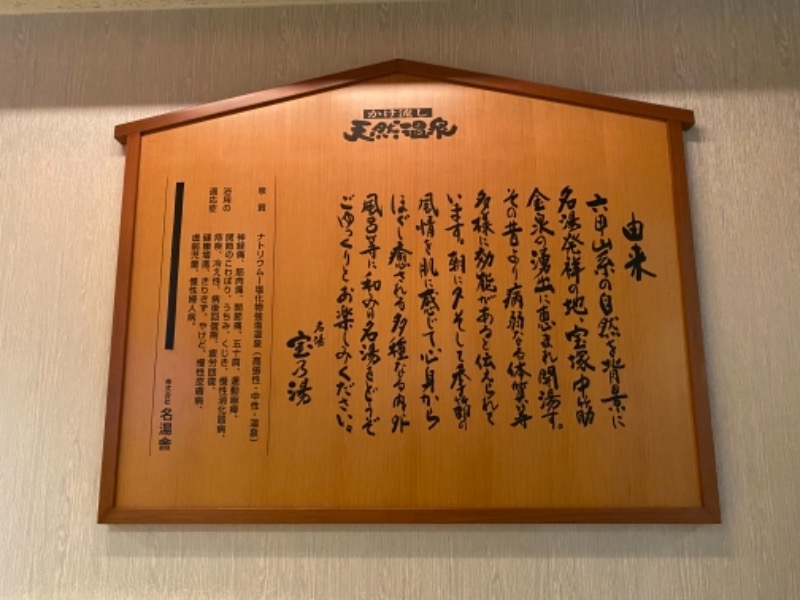 かけ流し
天然温泉
由来
六甲山系の自然を背景に
名湯発祥の地、宝塚中山筋
金泉の湧出に恵まれ開湯す。
その昔より病弱なる体質等
多様に効能があると伝えられて
います。朝に夕そして季節の
風情を肌に感じて心身から
ほぐし癒される多種なる内外
風呂等に和みの名湯をどうぞ
ごゆっくりとお楽しみください。
名湯
宝乃湯
泉質 ナトリウムー塩化物強塩温泉(高張性・中性・温泉)
浴用の
適応症
神経痛、筋肉痛、関節痛、五十肩、運動麻痺、
関節のこわばり、うちみ、くじき、慢性消化器病、
痔疾、冷え性、病後回復期、疲労回復、
健康増進、きりきず、やけど、慢性皮膚病、
虚弱児童、慢性婦人病、
株式会社 名湯舎